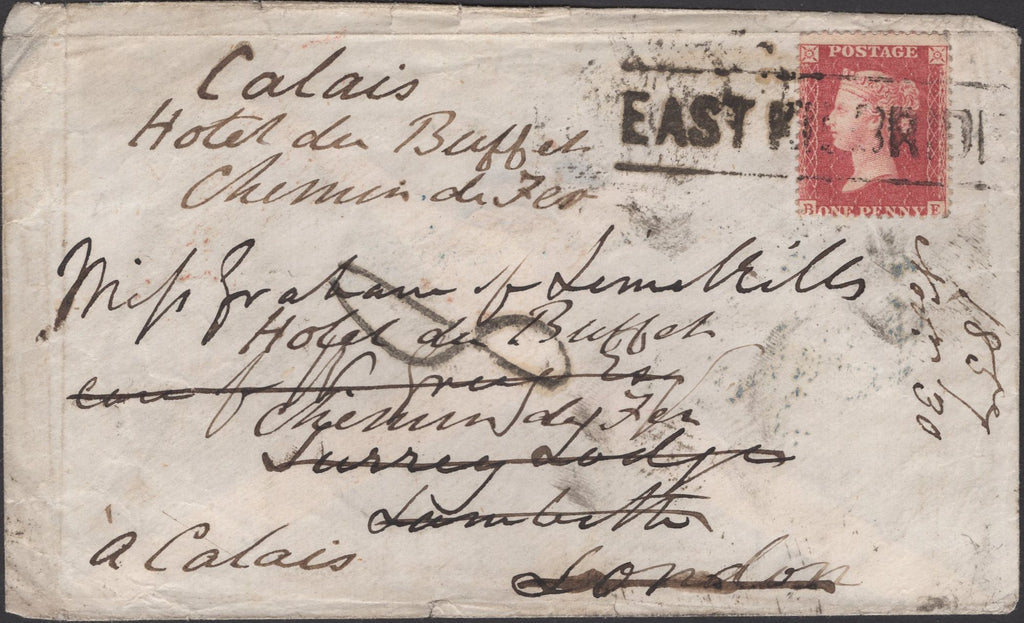 Calais
Hotel du Buffet
Chemin de Fer
POSTAGE
EAST KILBRIDE
B ONE PENNY E
Miss Graham of Limekills
Hotel du Buffet
Esq
Chemin de Fer
Surrey Lodge
Lambeth
London
a Calais
8
30